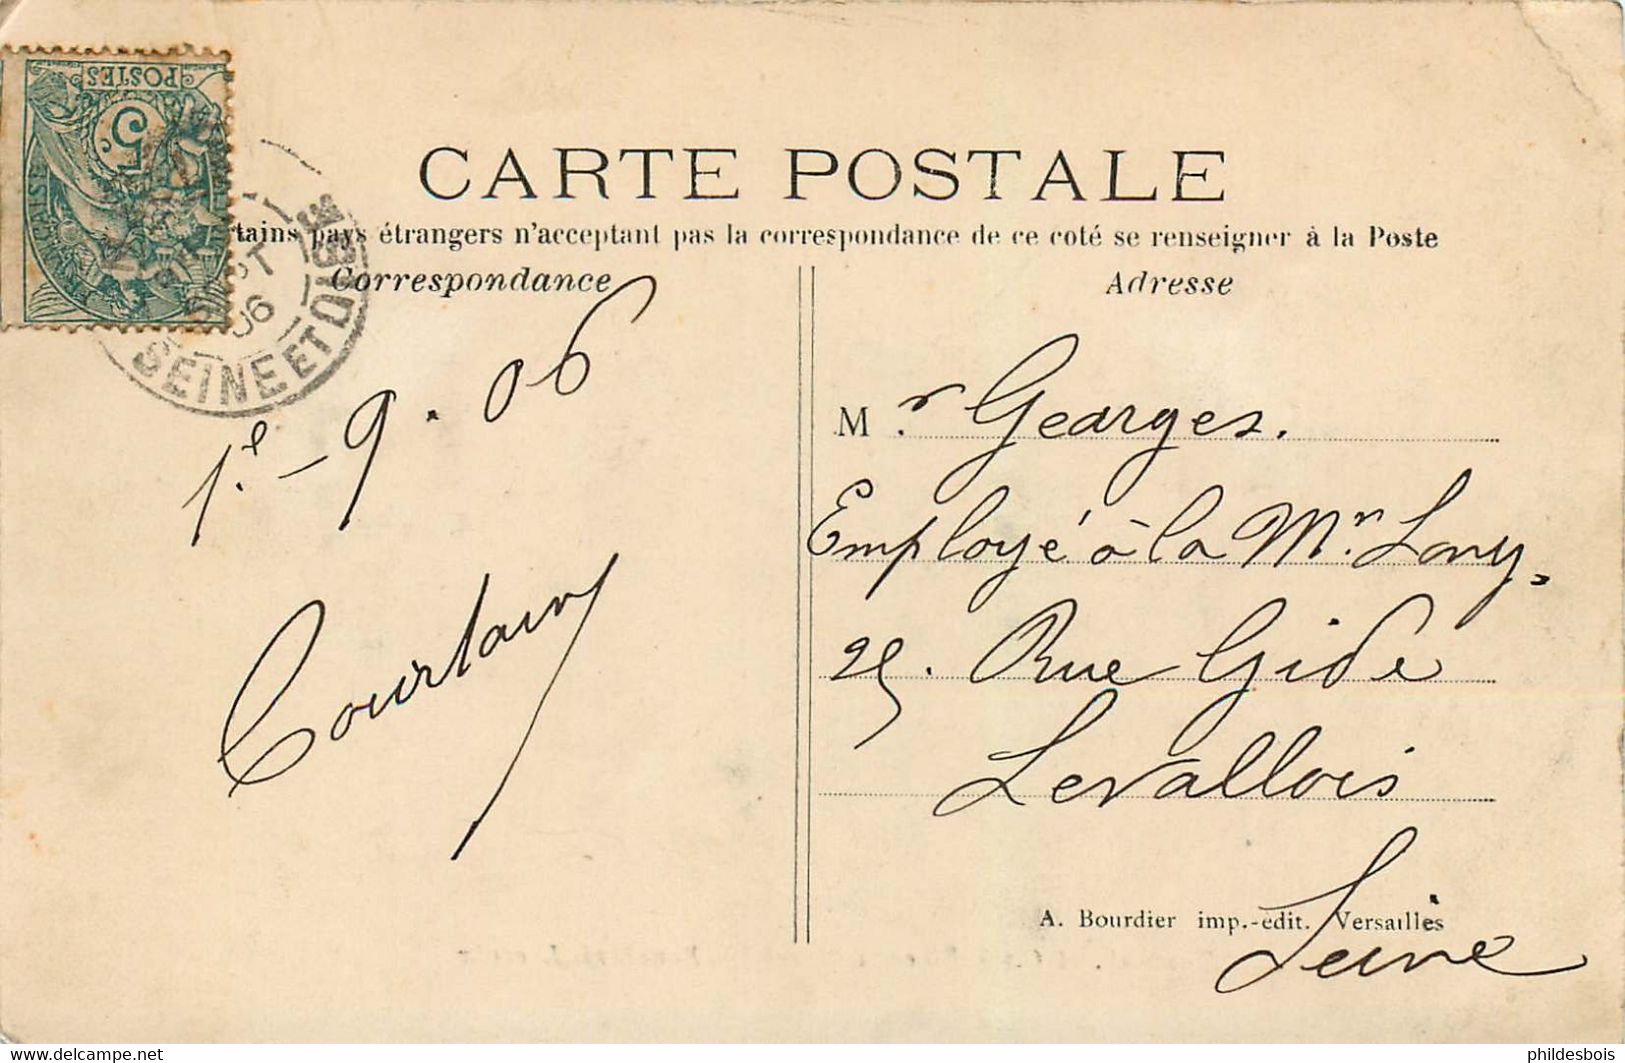 POSTES
5c.
CARTE POSTALE
tains pays étrangers n'acceptant pas la correspondance de ce coté se renseigner à la Poste
Correspondance
Adresse
SEPT
06
SEINE ET OISE
1e. - 9. 06
Courtain
Mr. Georges.
Employé à la Mon Lony,
25. Rue Gide
Levallois
Seine
A. Bourdier imp.-édit. Versailles
www.delcampe.net
phildesbois